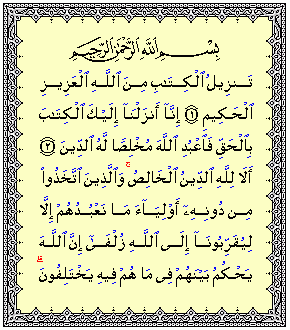 بِسْمِ ٱللَّهِ ٱلرَّحْمَٰنِ ٱلرَّحِيمِ
تَنزِيلُ ٱلْكِتَٰبِ مِنَ ٱللَّهِ ٱلْعَزِيزِ
ٱلْحَكِيمِ ۝١ إِنَّآ أَنزَلْنَآ إِلَيْكَ ٱلْكِتَٰبَ
بِٱلْحَقِّ فَٱعْبُدِ ٱللَّهَ مُخْلِصًا لَّهُ ٱلدِّينَ ۝٢
أَلَا لِلَّهِ ٱلدِّينُ ٱلْخَالِصُ ۚ وَٱلَّذِينَ ٱتَّخَذُوا۟
مِن دُونِهِۦٓ أَوْلِيَآءَ مَا نَعْبُدُهُمْ إِلَّا
لِيُقَرِّبُونَآ إِلَى ٱللَّهِ زُلْفَىٰٓ إِنَّ ٱللَّهَ
يَحْكُمُ بَيْنَهُمْ فِى مَا هُمْ فِيهِ يَخْتَلِفُونَ ۗ